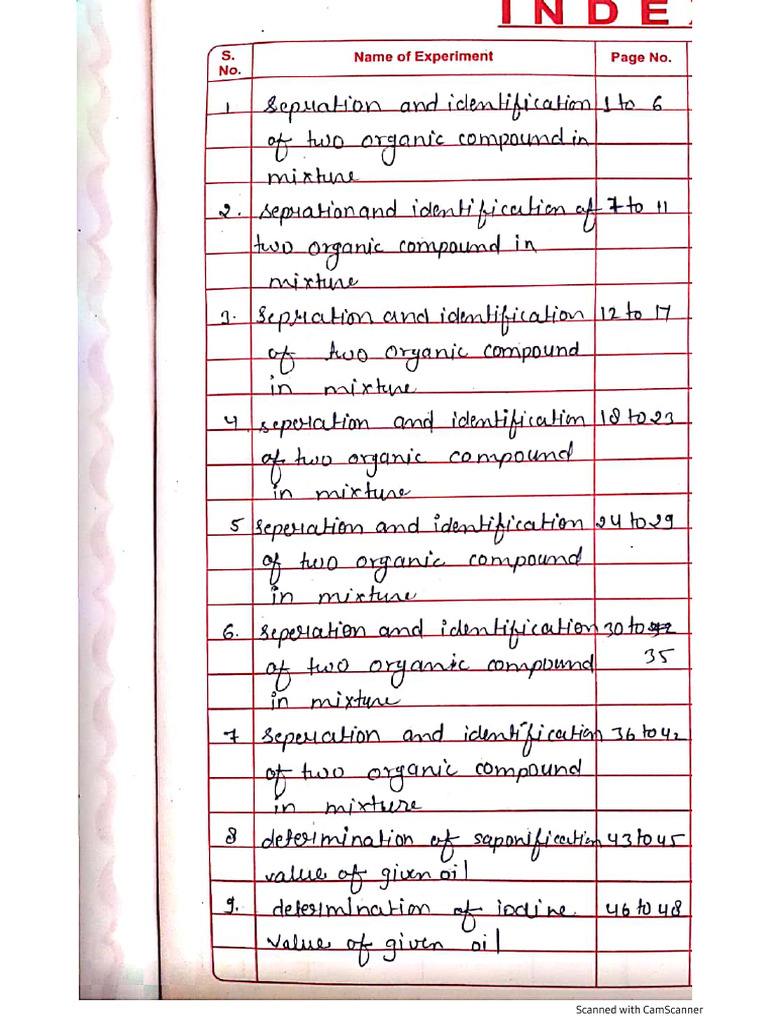 INDE
S. No. Name of Experiment Page No.
1 Sepration and identification 1 to 6
of two organic compound in
mixture
2. sepration and identification of 7 to 11
two organic compound in
mixture
3. Sepration and identification 12 to 17
of two organic compound
in mixture
4 seperation and identification 18 to 23
of two organic compound
in mixture
5 seperation and identification 24 to 29
of two organic compound
in mixture
6. seperation and identification 30 to
of two organic compound 35
in mixture
7 seperation and identification 36 to 42
of two organic compound
in mixture
8 determination of saponification 43 to 45
value of given oil
9. determination of iodine 46 to 48
value of given oil
Scanned with CamScanner